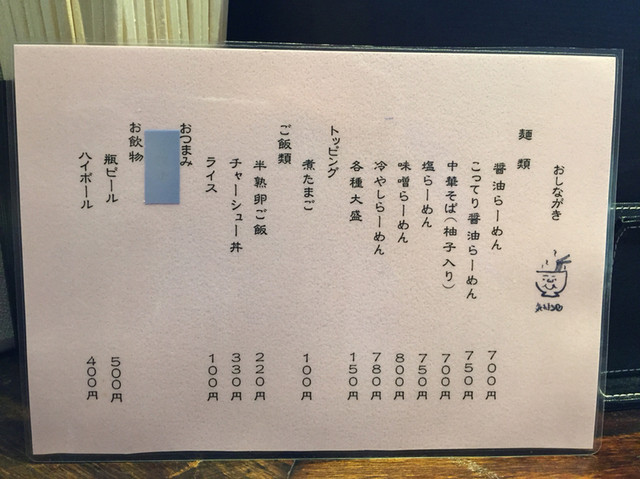 おしながき
麺類
醤油らーめん 700円
こってり醤油らーめん 750円
中華そば(柚子入り) 700円
塩らーめん 750円
味噌らーめん 800円
冷やしらーめん 780円
各種大盛 150円
トッピング
煮たまご 100円
ご飯類
半熟卵ご飯 220円
チャーシュー丼 330円
ライス 100円
おつまみ
お飲物
瓶ビール 500円
ハイボール 400円